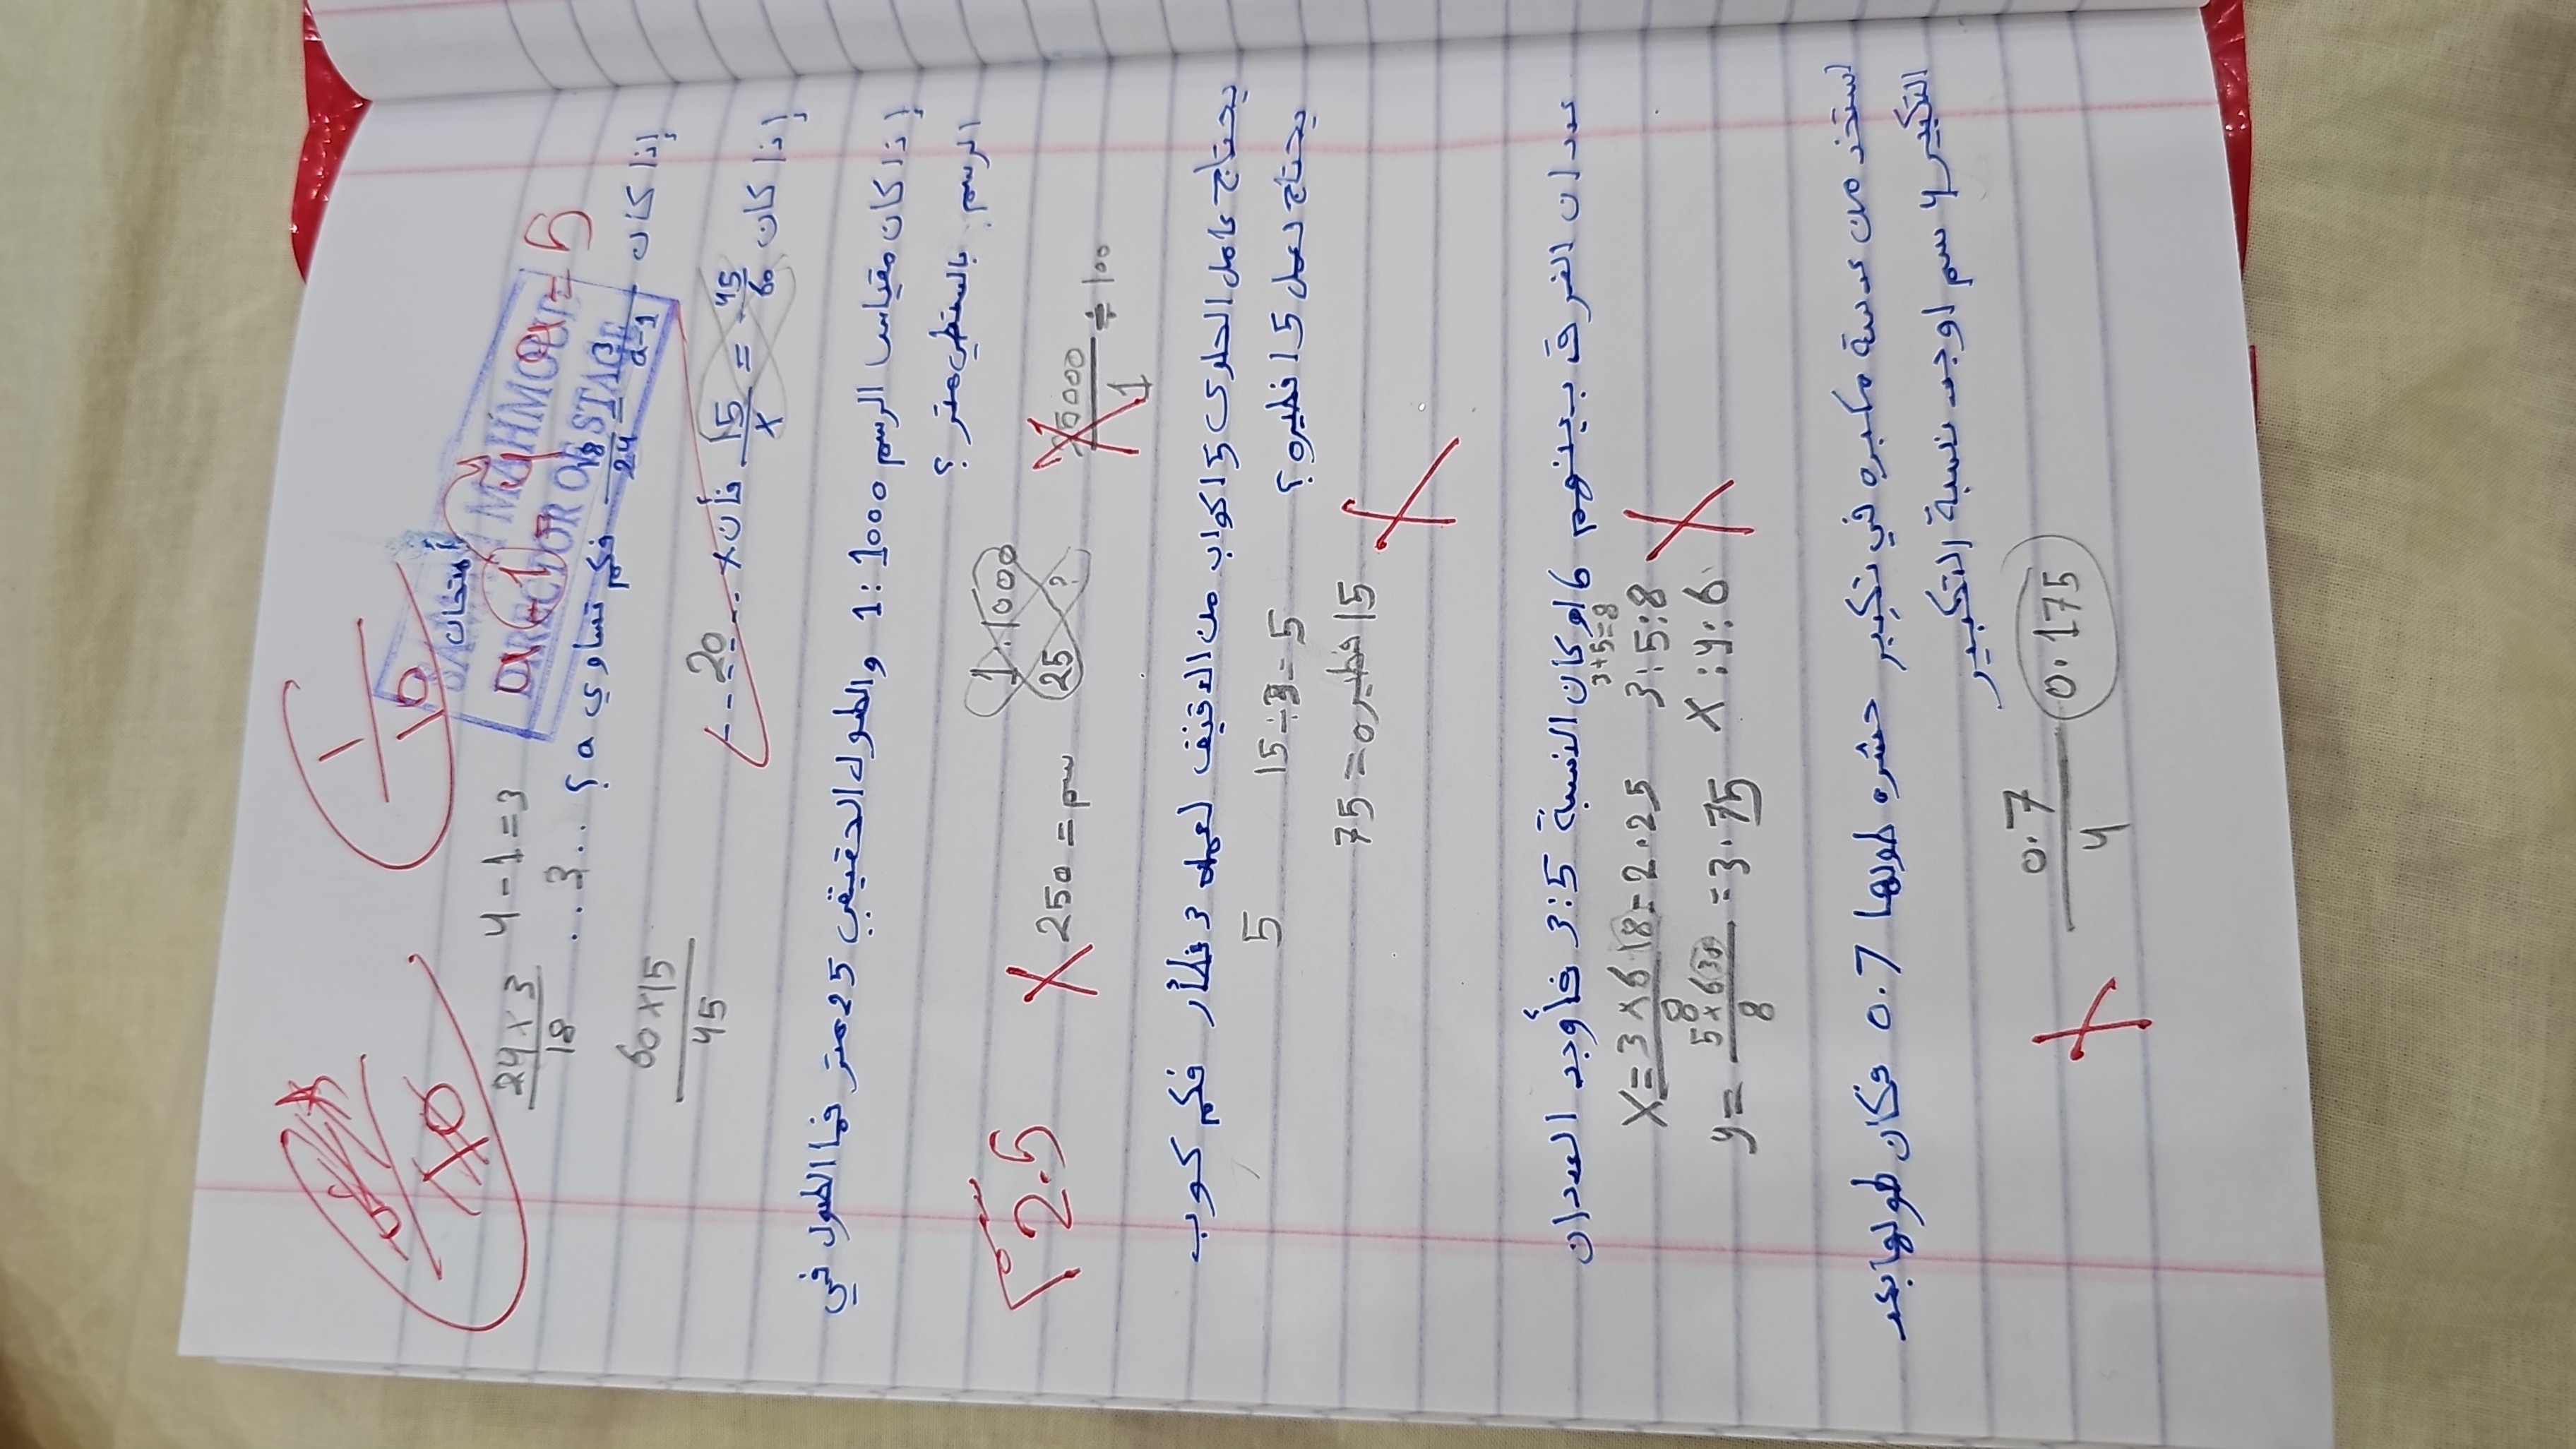 1/10
امتحان
SAM MAHMOUD
DIRECTOR OF STAGE
a - 1 = 4 a = 5
24 × 3 / 18 4 - 1 = 3
إذا كان 18/24 = 3/a-1 فكم تساوي a ؟ ..3..
60 × 15 / 45
إذا كان 45/60 = 15/x فأن x ..20..
إذا كان مقياس الرسم 1000 : 1 والطول الحقيقي 25 متر فما الطول في
الرسم بالسنطي متر ؟
1 : 1000
25 ?
25000/1 ÷ 100
250 = سم
2.5 سم
يحتاج عامل الحلوى 15 اكواب من الدقيق لعمل 3 فطأر فكم كوب
يحتاج لعمل 15 فطيره ؟
15 ÷ 3 = 5 5
15 فطيره = 75
عددان الفرق بينهم 6 او كان النسبة 3:5 فأوجد العددان
3+5=8
3 : 5 : 8
x : y : 6
x = 3 × 6 18 / 8 = 2.25
y = 5 × 6 30 / 8 = 3.75
استخد من عدسة مكبره في تكبير حشره طولها 0.7 فكان طولها بعد
التكبير 4 سم اوجد نسبة التكبير
0.7 / 4 0.175